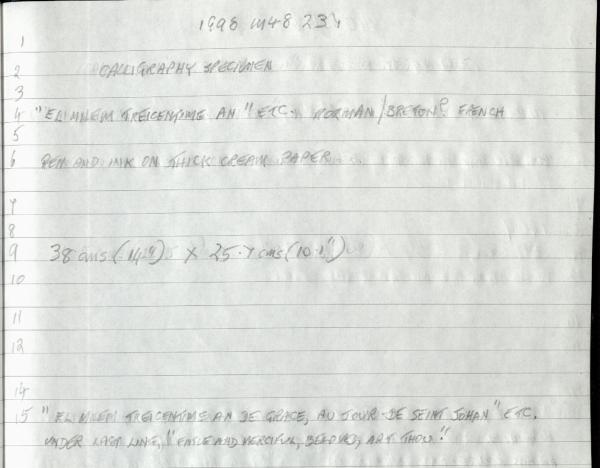 1998 M48 23
1
2 CALLIGRAPHY SPECIMEN
3
4 "EL MILEM TREICENTIME AN" ETC. NORMAN/BRETON? FRENCH
5
6 PEN AND INK ON THICK CREAM PAPER
7
8
9 38 cms (14") X 25.7 cms (10.1")
10
11
12
14
15 "EL MILEM TREICENTIME AN DE GRACE, AU JOUR DE SEINT JOHAN" ETC.
UNDER LAST LINE, AND MERCIFUL, BELOVED, ART THOU"